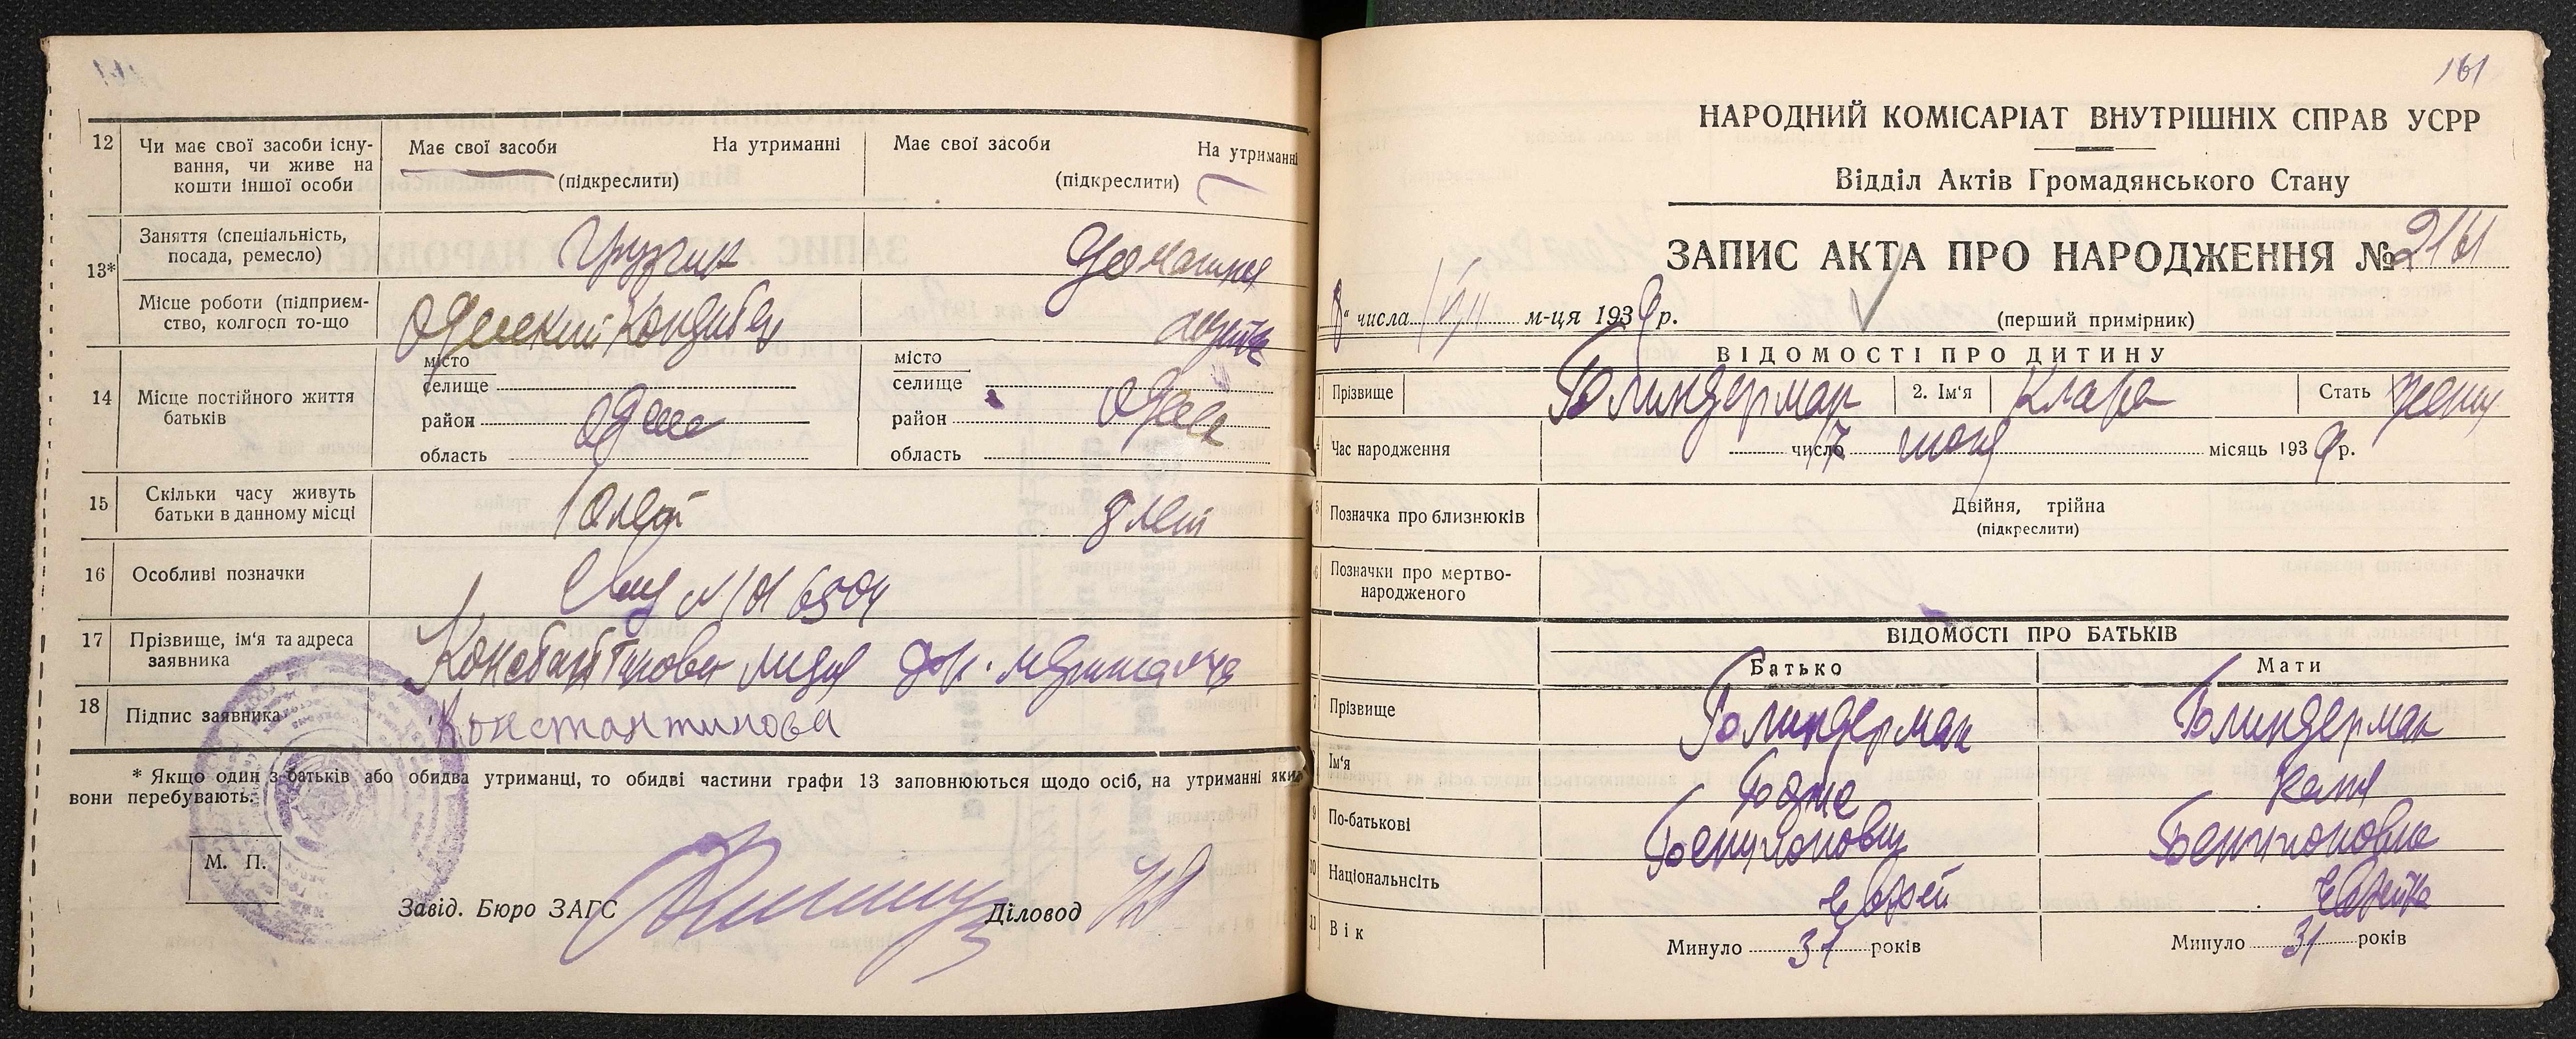 12 Чи має свої засоби існу-
вання, чи живе на
кошти іншої особи
Має свої засоби На утриманні
(підкреслити)
Має свої засоби На утриманні
(підкреслити)
13* Заняття (спеціальність,
посада, ремесло)
Грузчик
Домашняя
Місце роботи (підприєм-
ство, колгосп то-що
Одесский
14 Місце постійного життя
батьків
місто
селище
район
область
Одесса
місто
селище
район
область
Одесса
15 Скільки часу живуть
батьки в данному місці
10 лет
8 лет
16 Особливі позначки
17 Прізвище, ім'я та адреса
заявника
Константинова Лидия
18 Підпис заявника
Константинова
* Якщо один з батьків або обидва утриманці, то обидві частини графи 13 заповнюються щодо осіб, на утриманні яких
вони перебувають.
М. П.
Завід. Бюро ЗАГС
Діловод
161
НАРОДНИЙ КОМІСАРІАТ ВНУТРІШНІХ СПРАВ УСРР
Відділ Актів Громадянського Стану
ЗАПИС АКТА ПРО НАРОДЖЕННЯ № 2161
8" числа VII м-ця 1939 р.
(перший примірник)
ВІДОМОСТІ ПРО ДИТИНУ
1 Прізвище Блиндерман 2. Ім'я Клара Стать женщ
4 Час народження
число 17 июня місяць 1939 р.
5 Позначка про близнюків
Двійня, трійна
(підкреслити)
6 Позначки про мертво-
народженого
ВІДОМОСТІ ПРО БАТЬКІВ
Батько Мати
7 Прізвище Блиндерман Блиндерман
Ім'я
9 По-батькові Бенционович Бенционовна
10 Національнсіть Еврей Еврейка
11 Вік Минуло 31 років Минуло 31 років